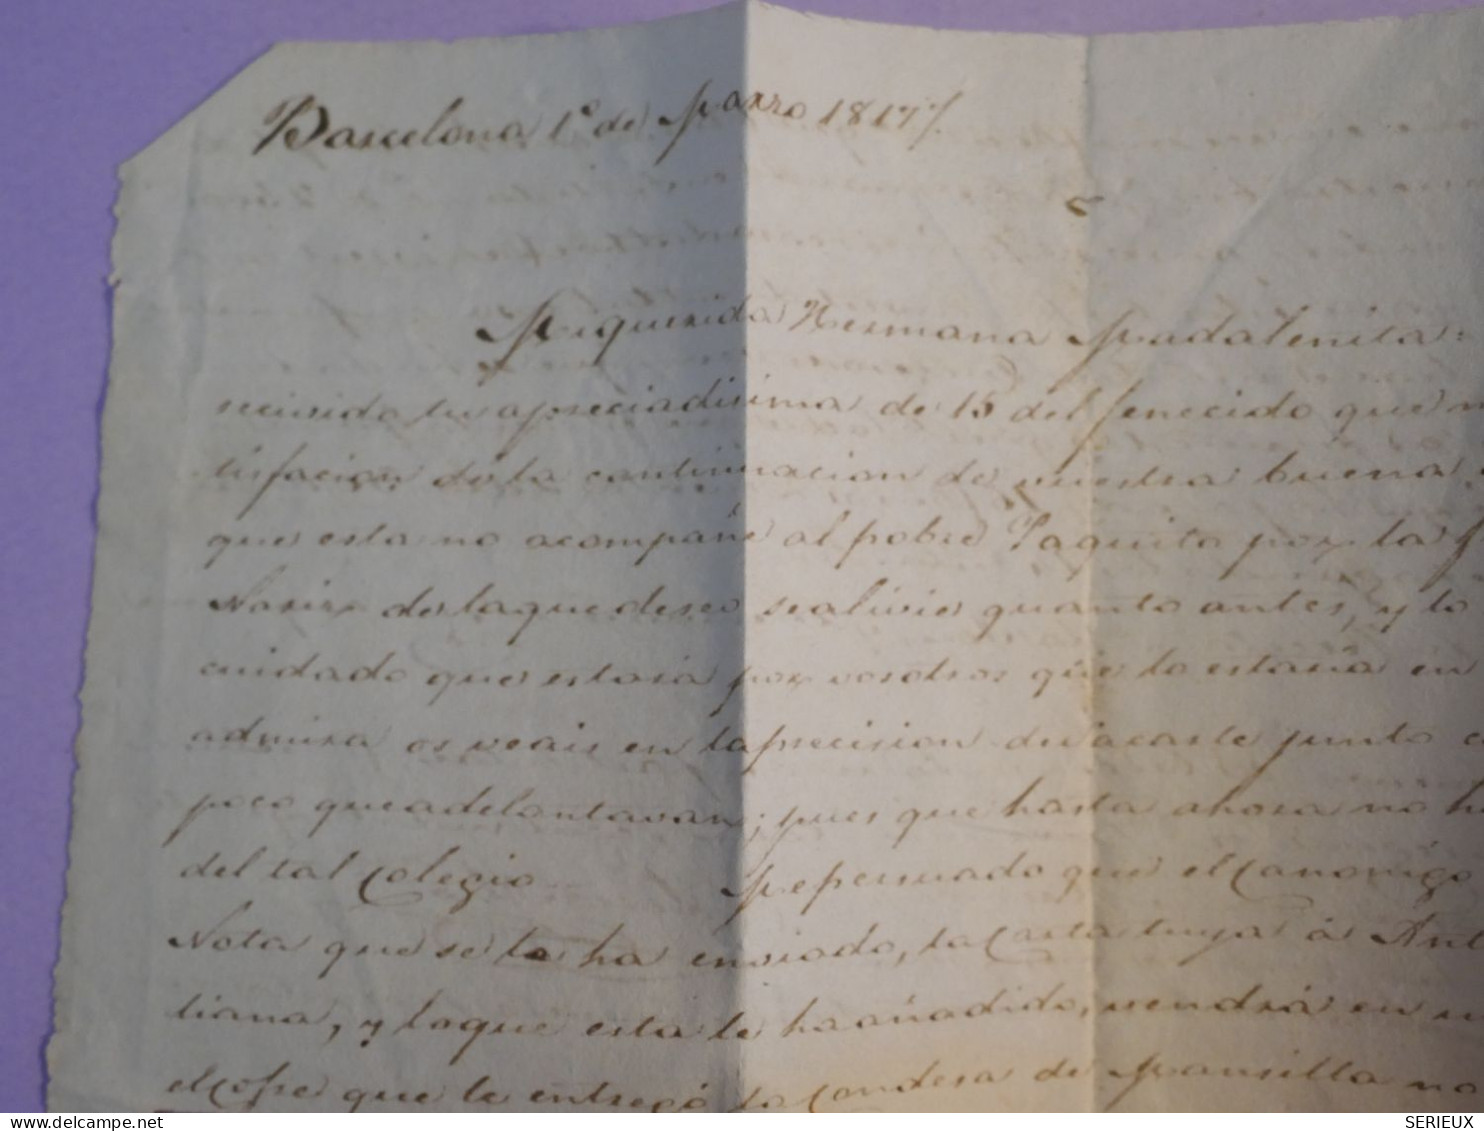 Barcelona 1º de Marzo 1817/.
Mi querida Hermana Madalenita:
recivida tu apreciadisima de 15 del fenecido que
tisfacion de la continuacion de vuestra buena
que esta no acompañe al pobre Paquito por la
Nariz de la que deseo se alivie quanto antes, y lo
cuidado que estará por vosotros que lo estaria en
admira os veais en la precision de sacarle junto
poco que adelantavan; pues que hasta ahora no
del tal Colegio Me persuado que el Canonigo
Nota que se lo ha enviado, la Carta tuya á Ant
liana, y lo que esta le ha añadido, vendrá en
el cofre que le entregó la Condesa de Mansilla no
SERIEUX
delcampe.net